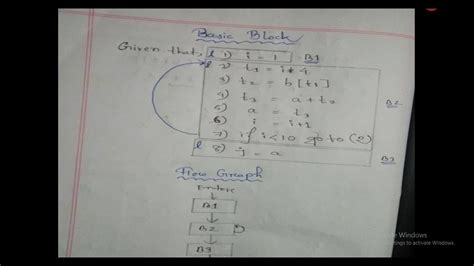 Basic Block
Given that, l 1) i = 1 B1
l 2) t1 = i * 4
3) t2 = b[t1]
4) t3 = a + t2 B2
5) a = t3
6) i = i+1
7) if i<10 go to (2)
l 8) j = a B3
Flow Graph
Entry
B1
B2
B3
Windows
ttings to activate Windows.